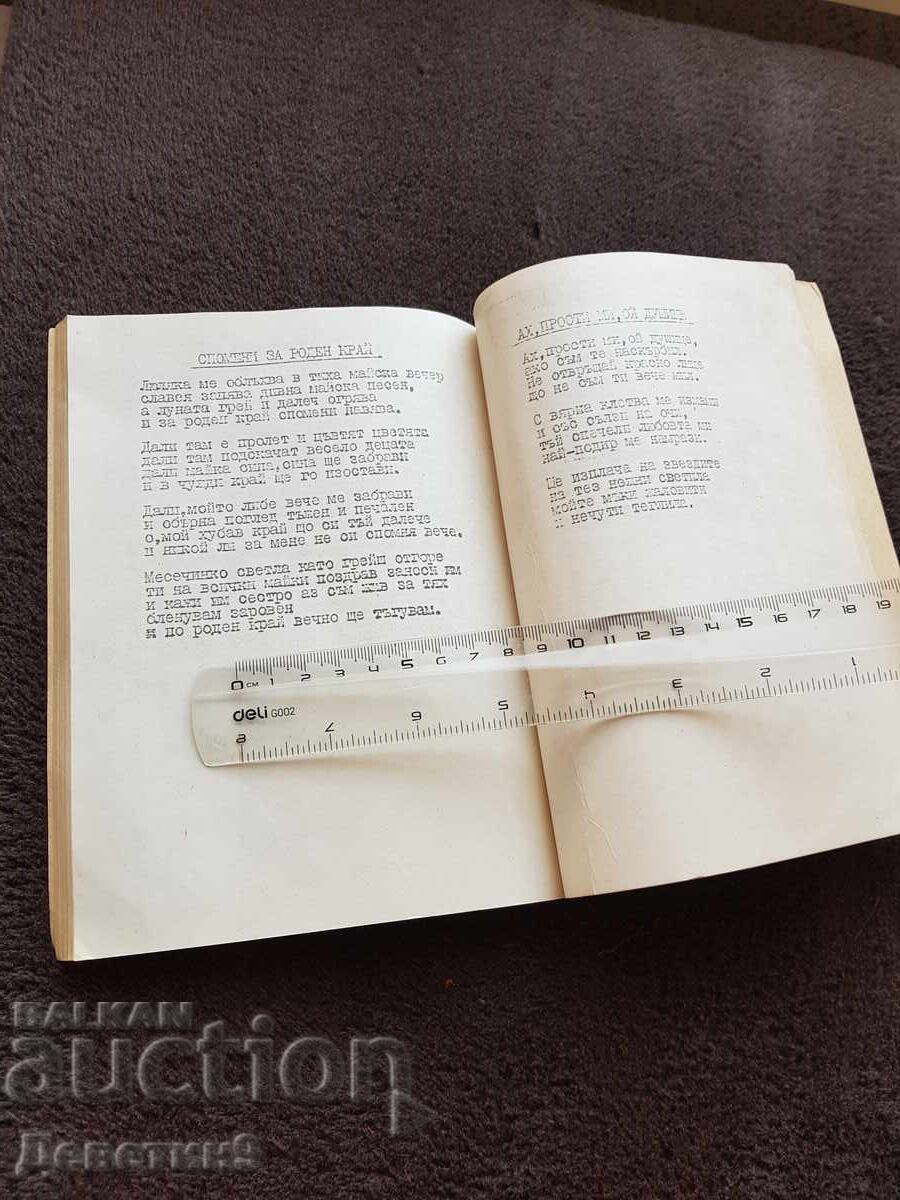 СПОМЕНИ ЗА РОДЕН КРАЙ
Люляка ме облъхва в тиха майска вечер
славея запява дивна майска песен,
а луната грей и далеч огрява
и за роден край спомени навява.
Дали там е пролет и цъвтят цветята
дали там подскачат весело децата
дали майка сина, сина ще забрави
и в чужди край ще го изостави.
Дали, мойто либе вече ме забрави
и обърна поглед тъжен и печален
о, мой хубав край що си тъй далече
и никой ли за мене не си спомня вече.
Месечинко светла като грейш отгоре
ти на всички майки поздрав заноси им
и кажи им сестро аз съм жив за тях
бленувам заровен
и по роден край вечно ще тъгувам.
АХ, ПРОСТИ МИ, ОЙ ДУШИЦЕ
Ах, прости ми, ой душице,
ако съм те наскърбил.
Не отвръщай красно лице
що не съм ти вече мил.
С вярна клетва ме измами
и със сълзи на очи,
тъй спечели любовта ми
най-подир ме намрази.
Ще изплача на звездите
на тез нежни светила
мойте мъки жаловити
и нечути теглила.
0 СМ 1 2 3 4 5 6 7 8 9 10 11 12 13 14 15 16 17 18 19
deli G002
8 7 6 5 4 3 2 1
BALKAN
auction
Деветин9